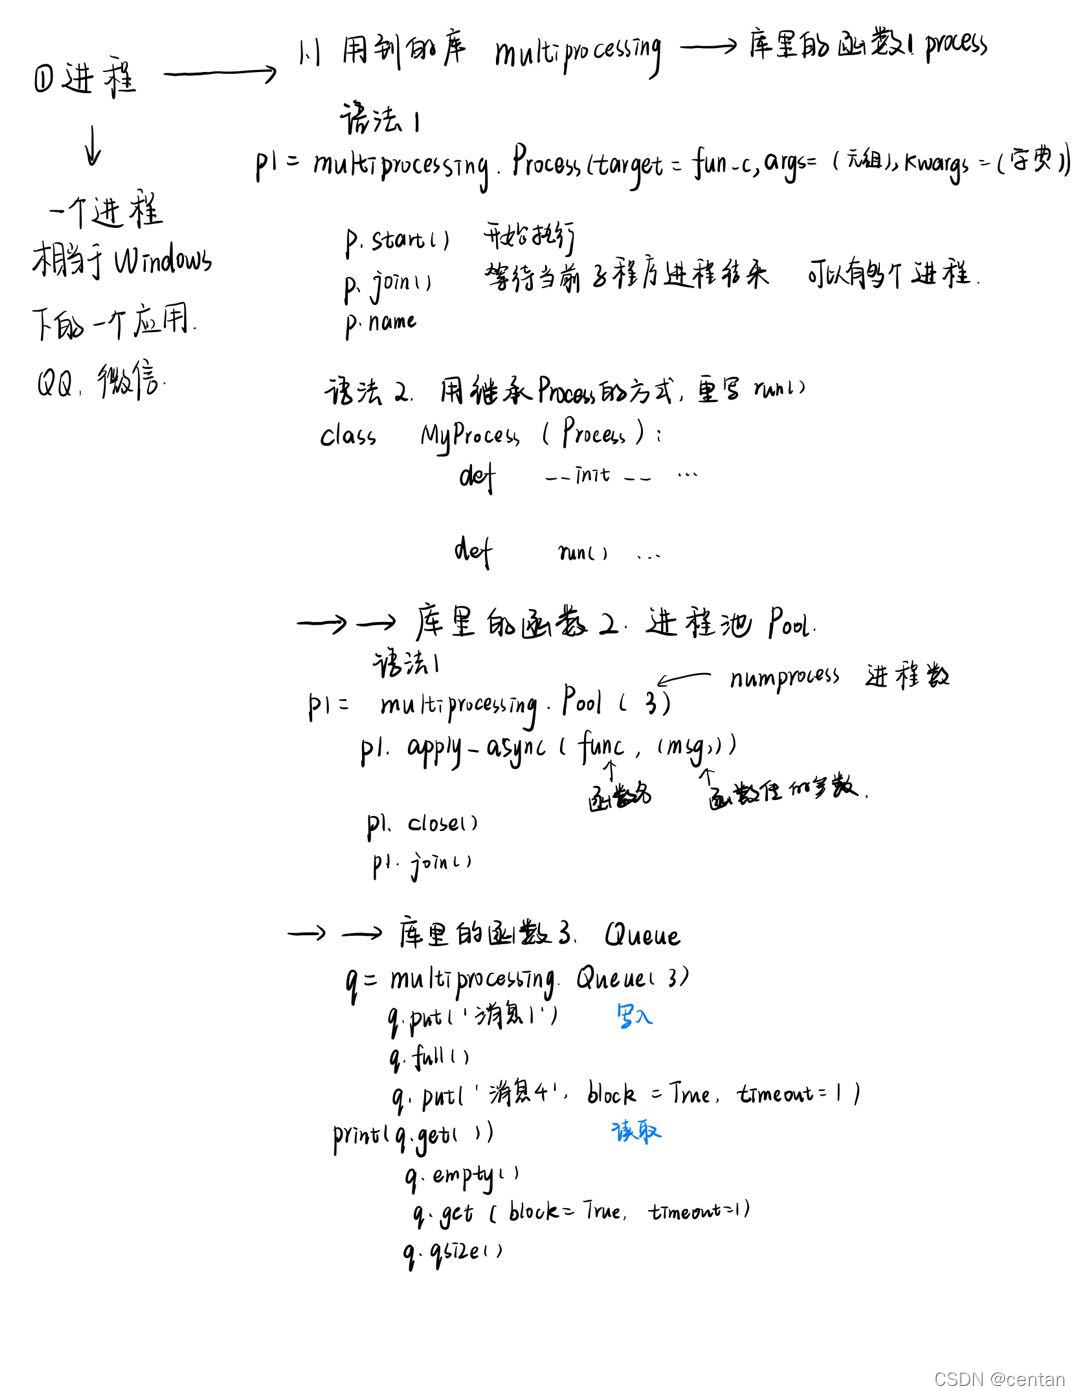 ①进程 → 1.1 用到的库 multiprocessing → 库里的函数1 process
语法1
p1 = multiprocessing.Process(target = fun_c, args= (元组), kwargs = (字典))
↓
一个进程
相当于Windows
下的一个应用.
QQ. 微信.
p.start() 开始执行
p.join() 等待当前子程序进程结束 可以有多个进程.
p.name
语法2. 用继承Process的方式, 重写run()
class MyProcess (Process):
def __init__ ...
def run() ...
→ → 库里的函数2. 进程池 Pool.
语法1
p1 = multiprocessing.Pool(3) ← numprocess 进程数
p1.apply_async(func, (msg,))
↑函数名 ↑函数里的参数.
p1.close()
p1.join()
→ → 库里的函数3. Queue
q = multiprocessing.Queue(3)
q.put('消息1') 写入
q.full()
q.put('消息4', block = True, timeout=1)
print(q.get()) 读取
q.empty()
q.get (block= True, timeout=1)
q.qsize()
CSDN @centan